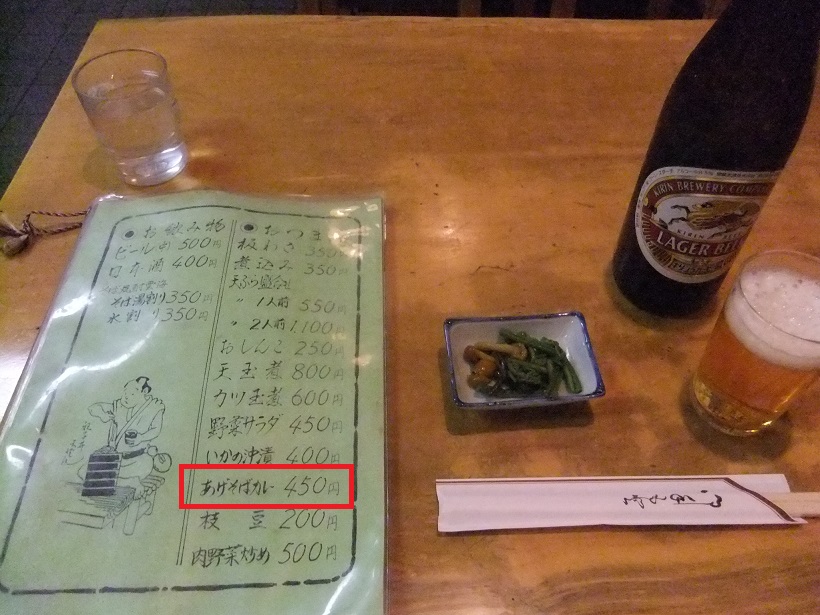 お飲み物
ビール中 500円
日本酒 400円
そば湯割り 350円
水割り 350円
おつま
板わさ 350
煮込み 350円
天ぷら盛合
〃 1人前 550
〃 2人前 1,100円
おしんこ 250円
天玉煮 800円
カツ玉煮 600円
野菜サラダ 450円
いかの沖漬 400円
あげそばカレー 450円
枝豆 200円
肉野菜炒め 500円
KIRIN BREWERY COMPANY
KIRIN
LAGER BEER